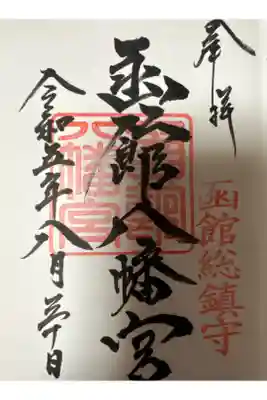 奉拝
函館総鎮守
函館八幡宮
八幡宮
令和五年八月